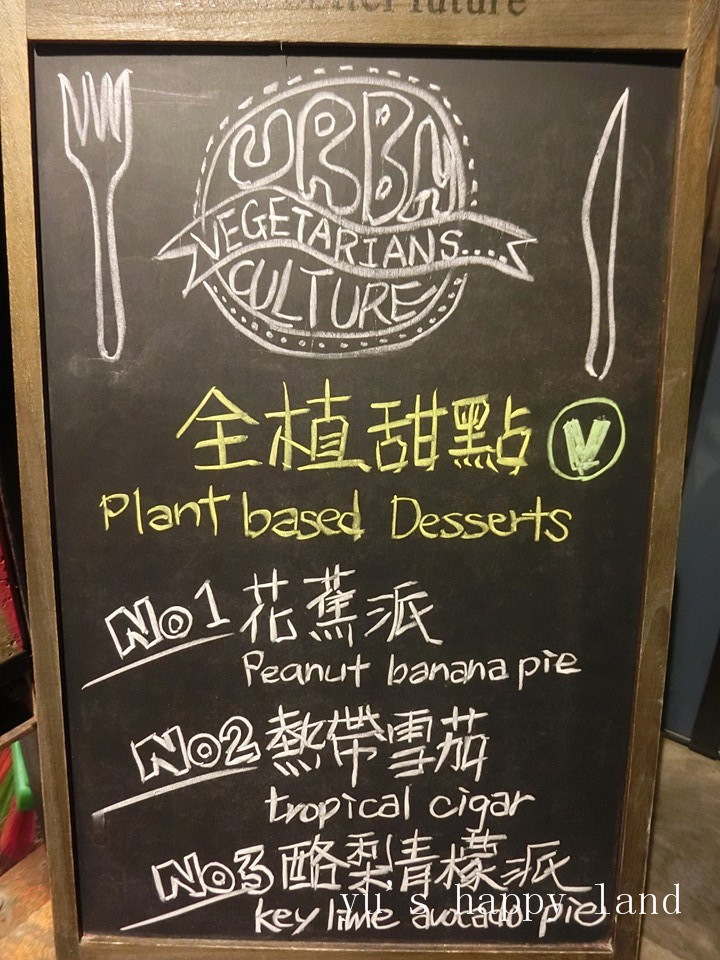 better future
URBN
VEGETARIANS....
CULTURE
全植甜點 V
Plant based Desserts
No1 花蕉派
Peanut banana pie
No2 熱帶雪茄
tropical cigar
No3 酪梨青檬派
key lime avocado pie
yu s happy land